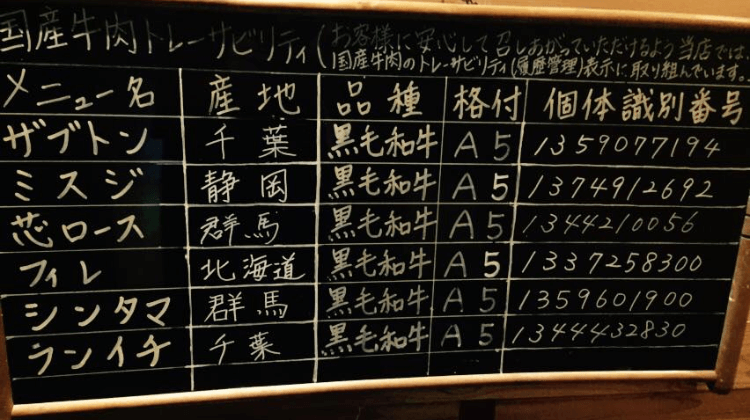 国産牛肉トレーサビリティ(お客様に安心して召しあがっていただけるよう当店では、
国産牛肉のトレーサビリティ(履歴管理)表示に取り組んでいます。
メニュー名 産地 品種 格付 個体識別番号
ザブトン 千葉 黒毛和牛 A5 1359077194
ミスジ 静岡 黒毛和牛 A5 1374912692
芯ロース 群馬 黒毛和牛 A5 1344210056
フィレ 北海道 黒毛和牛 A5 1337258300
シンタマ 群馬 黒毛和牛 A5 1359601900
ランイチ 千葉 黒毛和牛 A5 1344432830